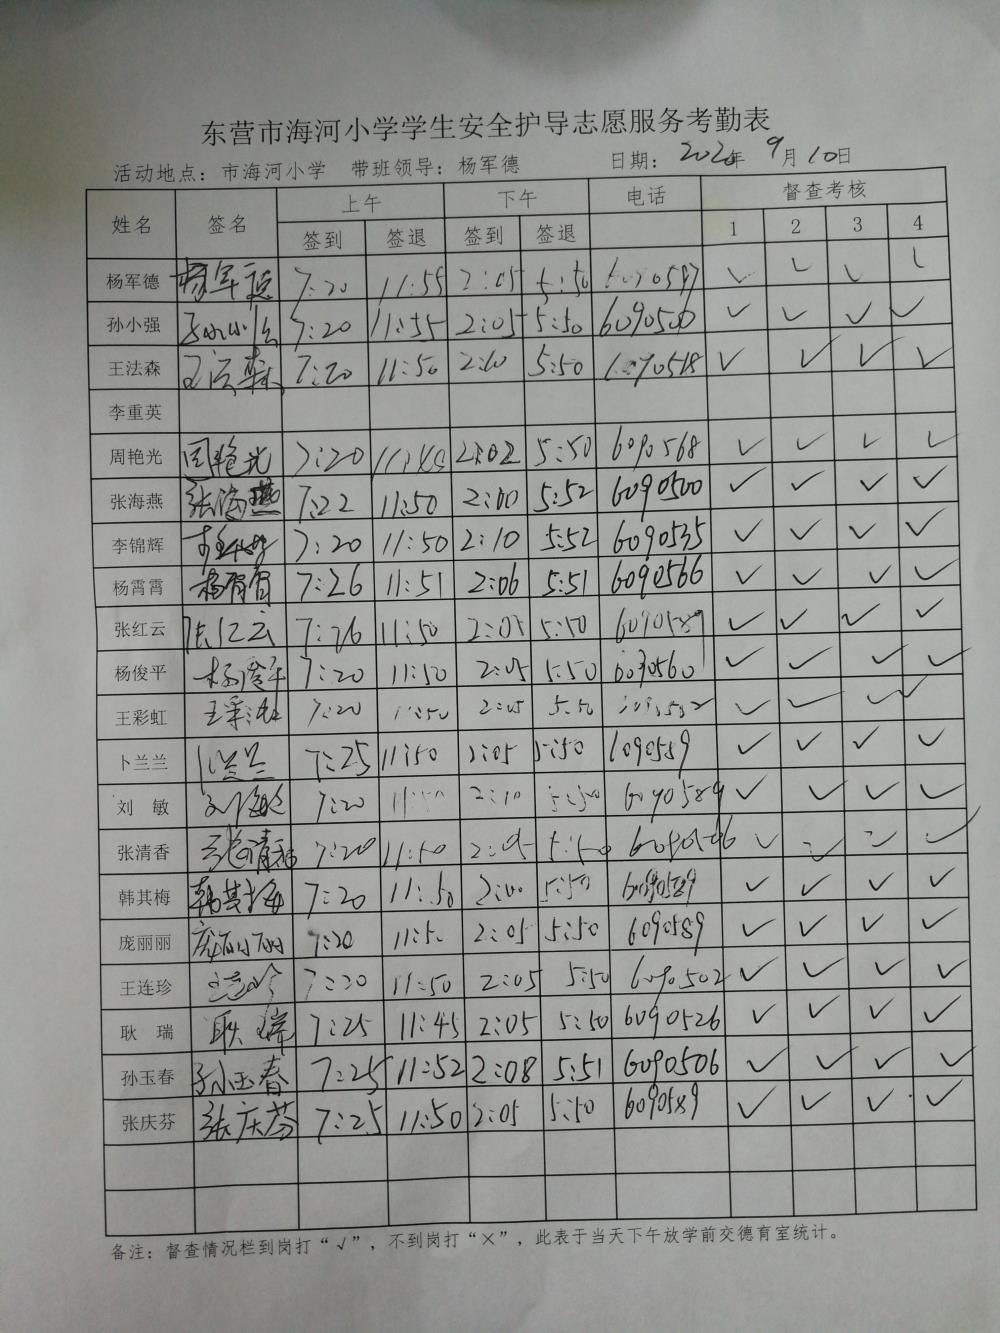 东营市海河小学学生安全护导志愿服务考勤表
活动地点：市海河小学 带班领导：杨军德 日期：2020年 9月10日
姓名 签名 上午 下午 电话 督查考核
签到 签退 签到 签退 1 2 3 4
杨军德 杨军德 7:20 11:55 2:05 5:50 6090587 ✓ ✓ ✓ ✓
孙小强 孙小强 7:20 11:55 2:05 5:50 6090500 ✓ ✓ ✓ ✓
王法森 王法森 7:20 11:50 2:10 5:50 6090518 ✓ ✓ ✓ ✓
李重英
周艳光 周艳光 7:20 11:45 2:02 5:50 6090568 ✓ ✓ ✓ ✓
张海燕 张海燕 7:22 11:50 2:00 5:52 6090500 ✓ ✓ ✓ ✓
李锦辉 李锦辉 7:20 11:50 2:10 5:52 6090535 ✓ ✓ ✓ ✓
杨霄霄 杨霄霄 7:26 11:51 2:06 5:51 6090566 ✓ ✓ ✓ ✓
张红云 张红云 7:26 11:50 2:05 5:50 6090589 ✓ ✓ ✓ ✓
杨俊平 杨俊平 7:20 11:50 2:05 5:50 6090560 ✓ ✓ ✓ ✓
王彩虹 王彩虹 7:20 11:50 2:05 5:50 ✓ ✓ ✓
卜兰兰 卜兰兰 7:25 11:50 2:05 5:50 6090589 ✓ ✓ ✓ ✓
刘 敏 刘敏 7:20 11:50 2:10 5:50 6090589 ✓ ✓ ✓ ✓
张清香 张清香 7:20 11:50 2:05 5:50 ✓ ✓ ✓ ✓
韩其梅 韩其梅 7:20 11:50 2:00 5:50 6090589 ✓ ✓ ✓ ✓
庞丽丽 庞丽丽 7:20 11:50 2:05 5:50 6090589 ✓ ✓ ✓ ✓
王连珍 王连珍 7:20 11:50 2:05 5:50 6090502 ✓ ✓ ✓ ✓
耿 瑞 耿瑞 7:25 11:45 2:05 5:50 6090526 ✓ ✓ ✓ ✓
孙玉春 孙玉春 7:25 11:52 2:08 5:51 6090506 ✓ ✓ ✓ ✓
张庆芬 张庆芬 7:25 11:50 2:05 5:50 6090589 ✓ ✓ ✓ ✓
备注：督查情况栏到岗打“√”，不到岗打“×”，此表于当天下午放学前交德育室统计。